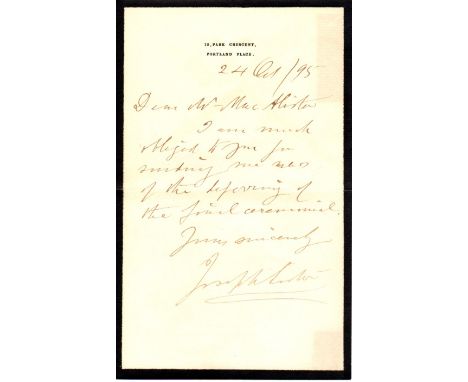 12, PARK CRESCENT,
PORTLAND PLACE.
24 Oct/95
Dear Mr MacAlister
I am much
obliged to you for
sending me news
of the deferring of
the final ceremonial.
Yours sincerely
Joseph Lister